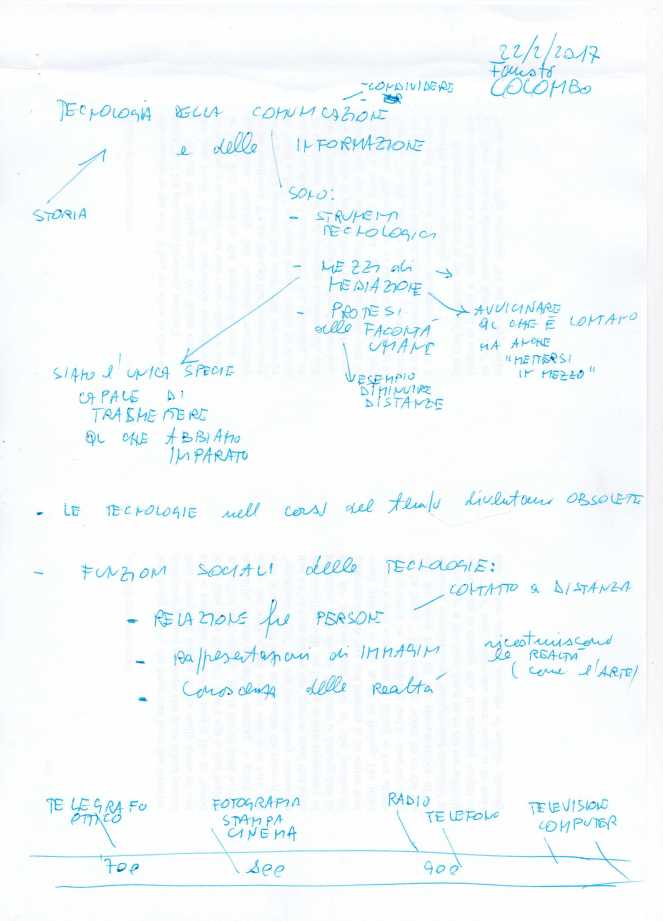 22/2/2017
Fausto
COLOMBO
- CONDIVIDERE
TECNOLOGIA DELLA COMUNICAZIONE
e delle INFORMAZIONE
STORIA
SONO:
- STRUMENTI
TECNOLOGICI
- MEZZI di
MEDIAZIONE
- PROTESI
delle FACOLTÀ
UMANE
AVVICINARE
QL CHE È LONTANO
MA ANCHE
"METTERSI
IN MEZZO"
ESEMPIO
DIMINUIRE
DISTANZE
SIAMO l'UNICA SPECIE
CAPACE DI
TRASMETTERE
QL CHE ABBIAMO
IMPARATO
- LE TECNOLOGIE nell corso del tempo diventano OBSOLETE
- FUNZIONI SOCIALI delle TECNOLOGIE:
CONTATTO a DISTANZA
- RELAZIONE fra PERSONE
- Rappresentazioni di IMMAGINI
ricostruiscono
le REALTÀ
(come l'ARTE)
- Conoscenza delle Realtà
TELEGRAFO
OTTICO
FOTOGRAFIA
STAMPA
CINEMA
RADIO
TELEFONO
TELEVISIONE
COMPUTER
'700 800 900